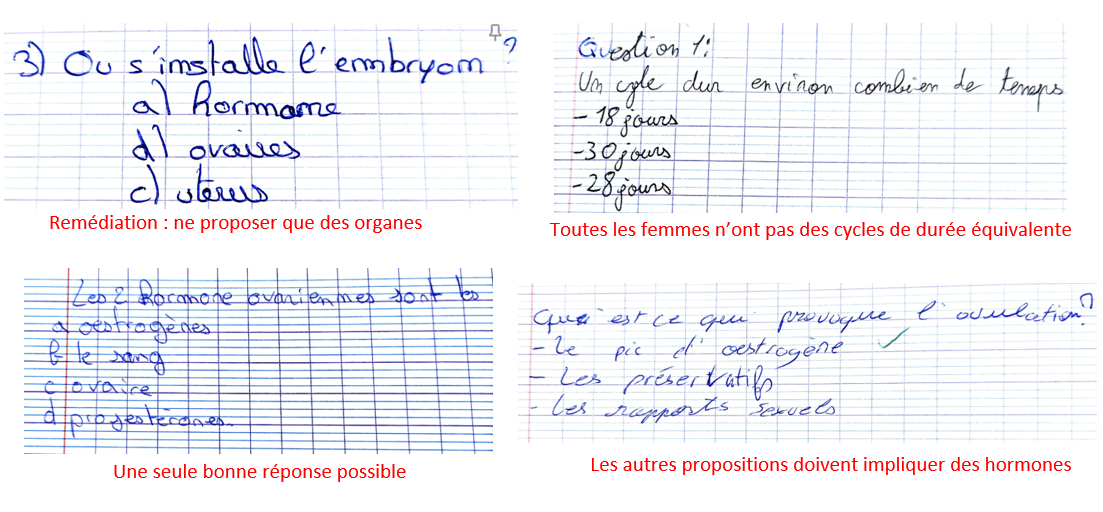 3) Ou s'installe l'embryom ?
a) hormone
d) ovaires
c) utérus
Remédiation : ne proposer que des organes
Question 1:
Un cycle dur environ combien de temps
- 18 jours
- 30 jours
- 28 jours
Toutes les femmes n'ont pas des cycles de durée équivalente
Les 2 hormone ovariennes sont les
a oestrogènes
b le sang
c ovaire
d progestérones.
Une seule bonne réponse possible
Qu'est ce qui provoque l'ovulation ?
- Le pic d'oestrogène
- Les préservatifs
- Les rapports sexuels
Les autres propositions doivent impliquer des hormones